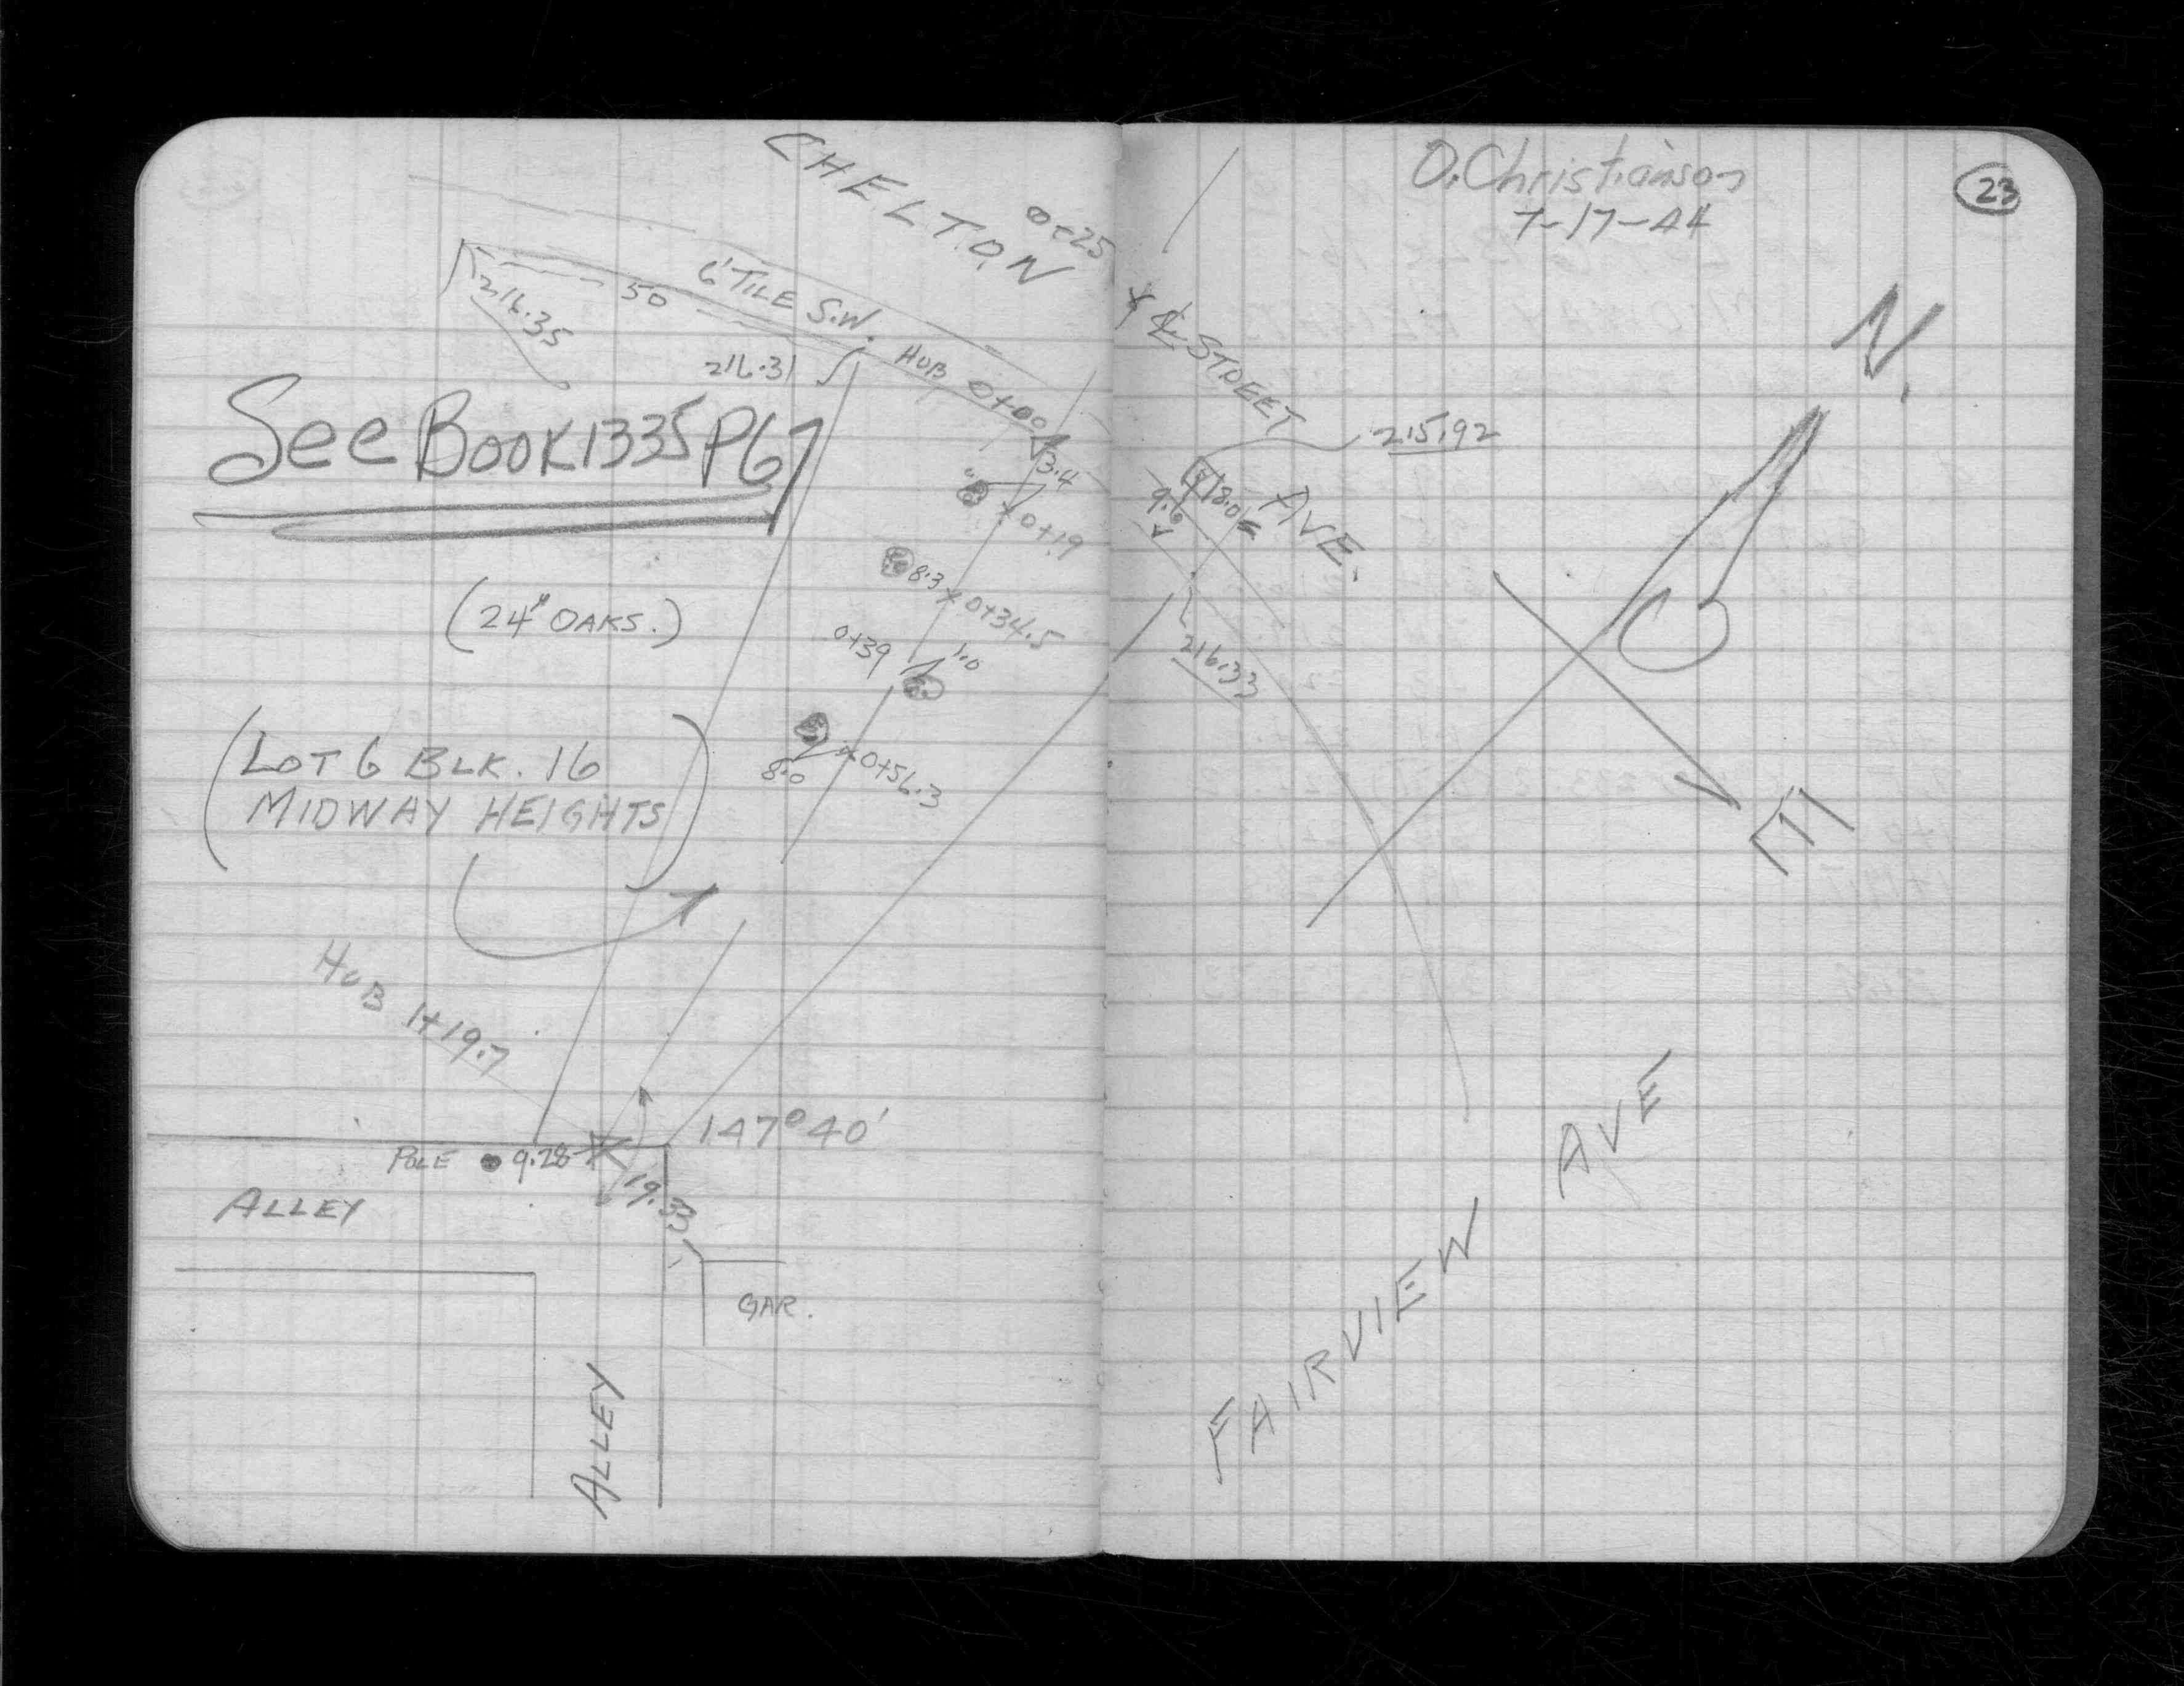 CHELTON
0+25
6' TILE S.W.
50
216.35
216.31
HUB 0+00
See Book 1335 P67
3.4
0+19
(24" OAKS.)
8.3
0+34.5
0+39
1.0
(LOT 6 BLK. 16
MIDWAY HEIGHTS)
8.0
0+56.3
HUB 1+19.7
147°40'
POLE
9.28
19.33
ALLEY
GAR.
ALLEY
O. Christianson
7-17-44
23
℄ STREET
215.92
9.6
18.0
AVE.
216.33
N.
E
FAIRVIEW AVE